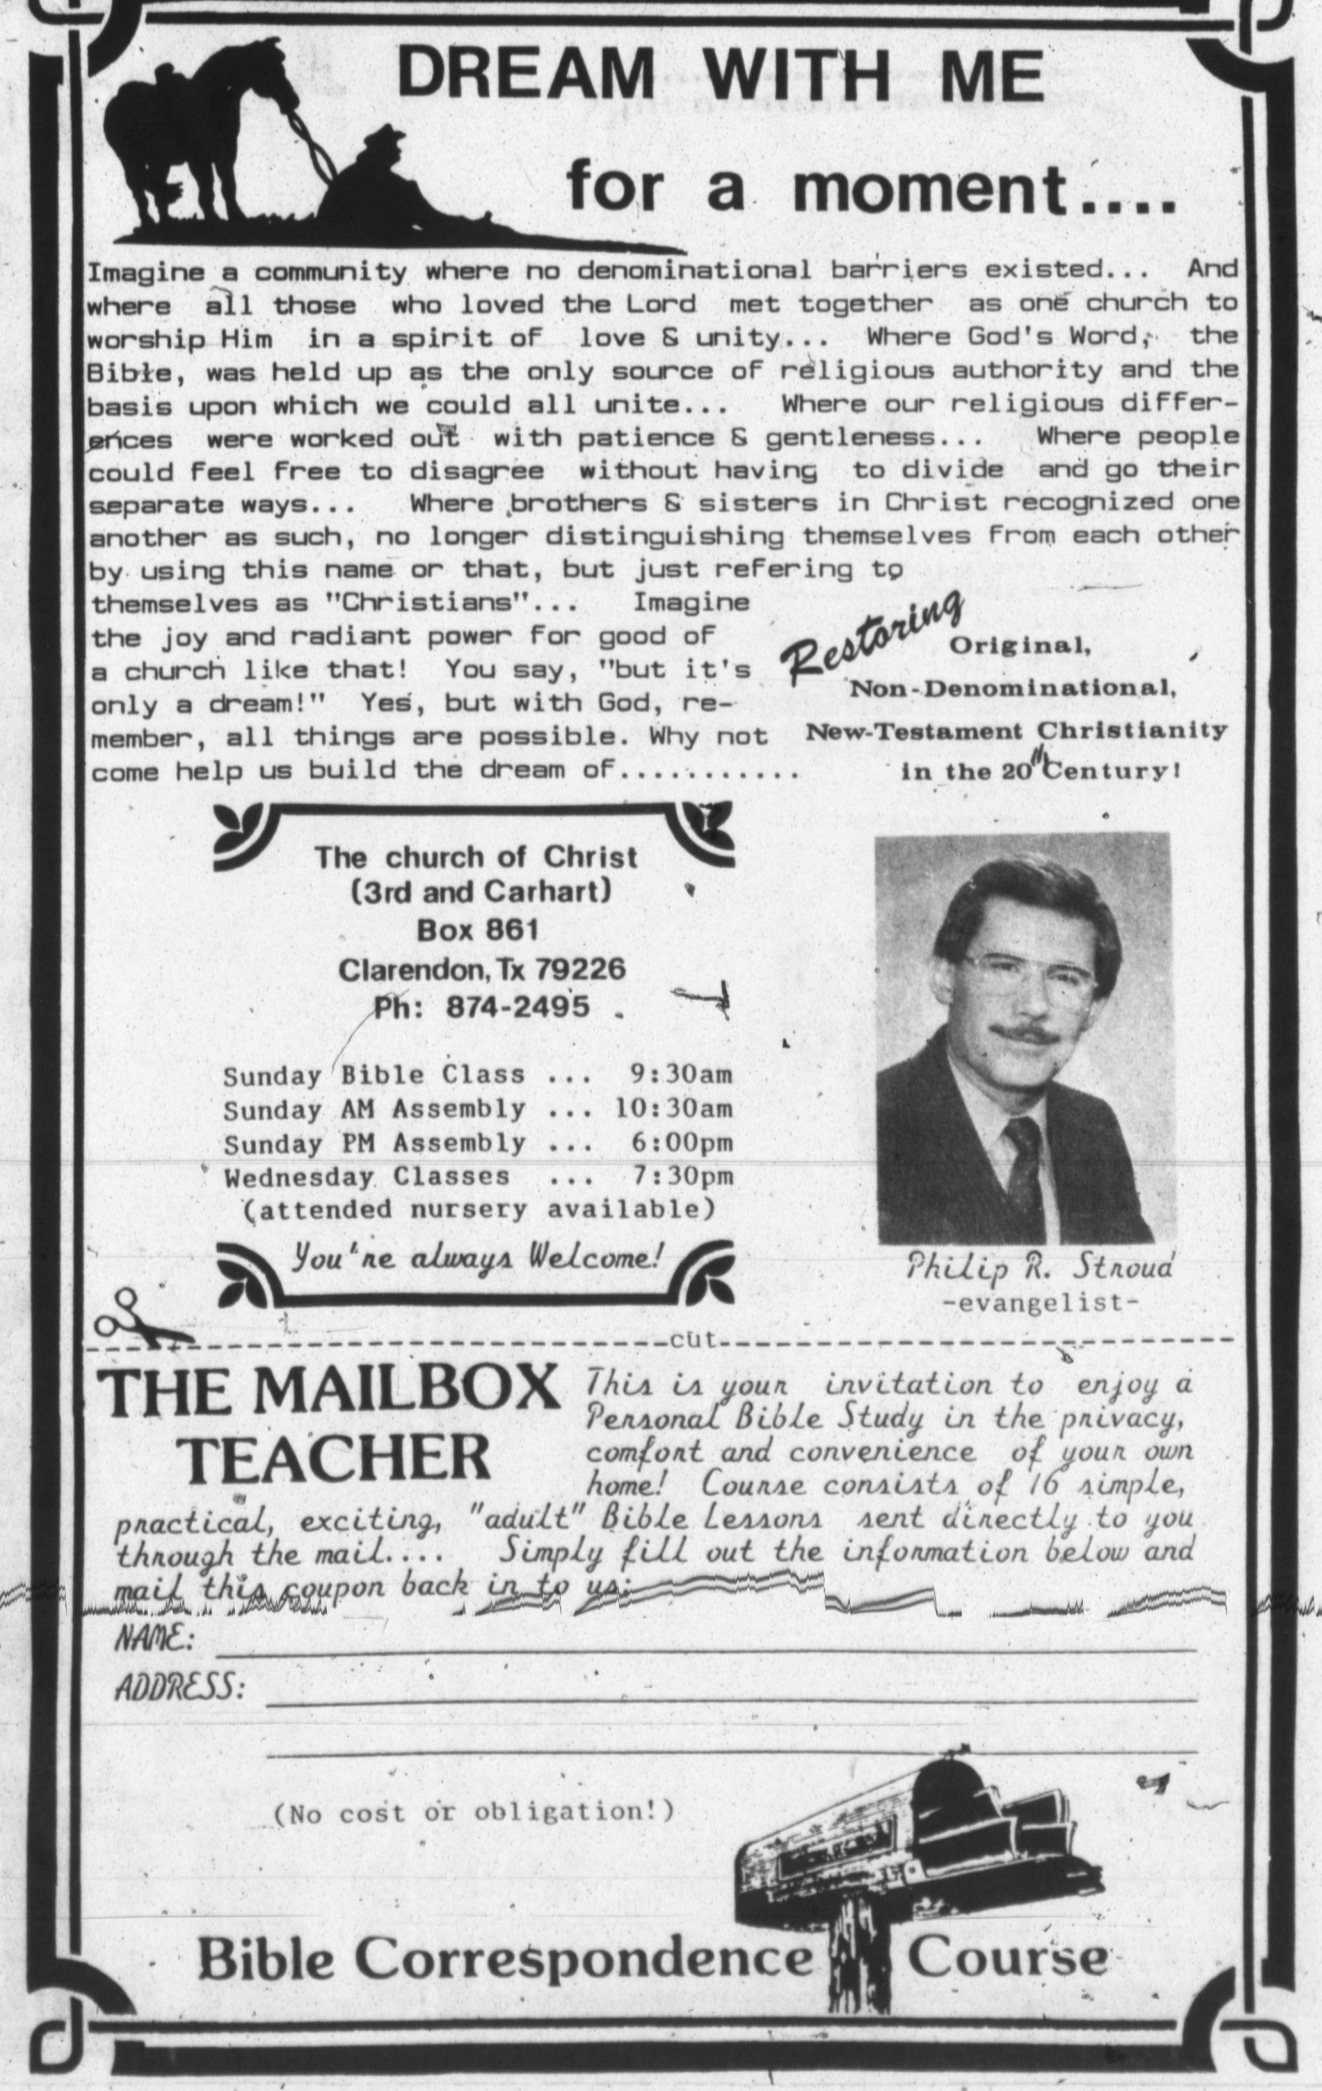 DREAM WITH ME
for a moment....
Imagine a community where no denominational barriers existed... And
where all those who loved the Lord met together as one church to
worship Him in a spirit of love & unity... Where God's Word, the
Bible, was held up as the only source of religious authority and the
basis upon which we could all unite... Where our religious differ-
ences were worked out with patience & gentleness... Where people
could feel free to disagree without having to divide and go their
separate ways... Where brothers & sisters in Christ recognized one
another as such, no longer distinguishing themselves from each other
by using this name or that, but just refering to
themselves as "Christians"... Imagine
the joy and radiant power for good of
a church like that! You say, "but it's
only a dream!" Yes, but with God, re-
member, all things are possible. Why not
come help us build the dream of...........
Restoring
Original,
Non-Denominational,
New-Testament Christianity
in the 20th Century!
The church of Christ
(3rd and Carhart)
Box 861
Clarendon, Tx 79226
Ph: 874-2495
Sunday Bible Class ... 9:30am
Sunday AM Assembly ... 10:30am
Sunday PM Assembly ... 6:00pm
Wednesday Classes ... 7:30pm
(attended nursery available)
You're always Welcome!
Philip R. Stroud
-evangelist-
cut
THE MAILBOX
TEACHER
This is your invitation to enjoy a
Personal Bible Study in the privacy,
comfort and convenience of your own
home! Course consists of 16 simple,
practical, exciting, "adult" Bible Lessons sent directly to you
through the mail.... Simply fill out the information below and
mail this coupon back in to us:
NAME:
ADDRESS:
(No cost or obligation!)
Bible Correspondence Course